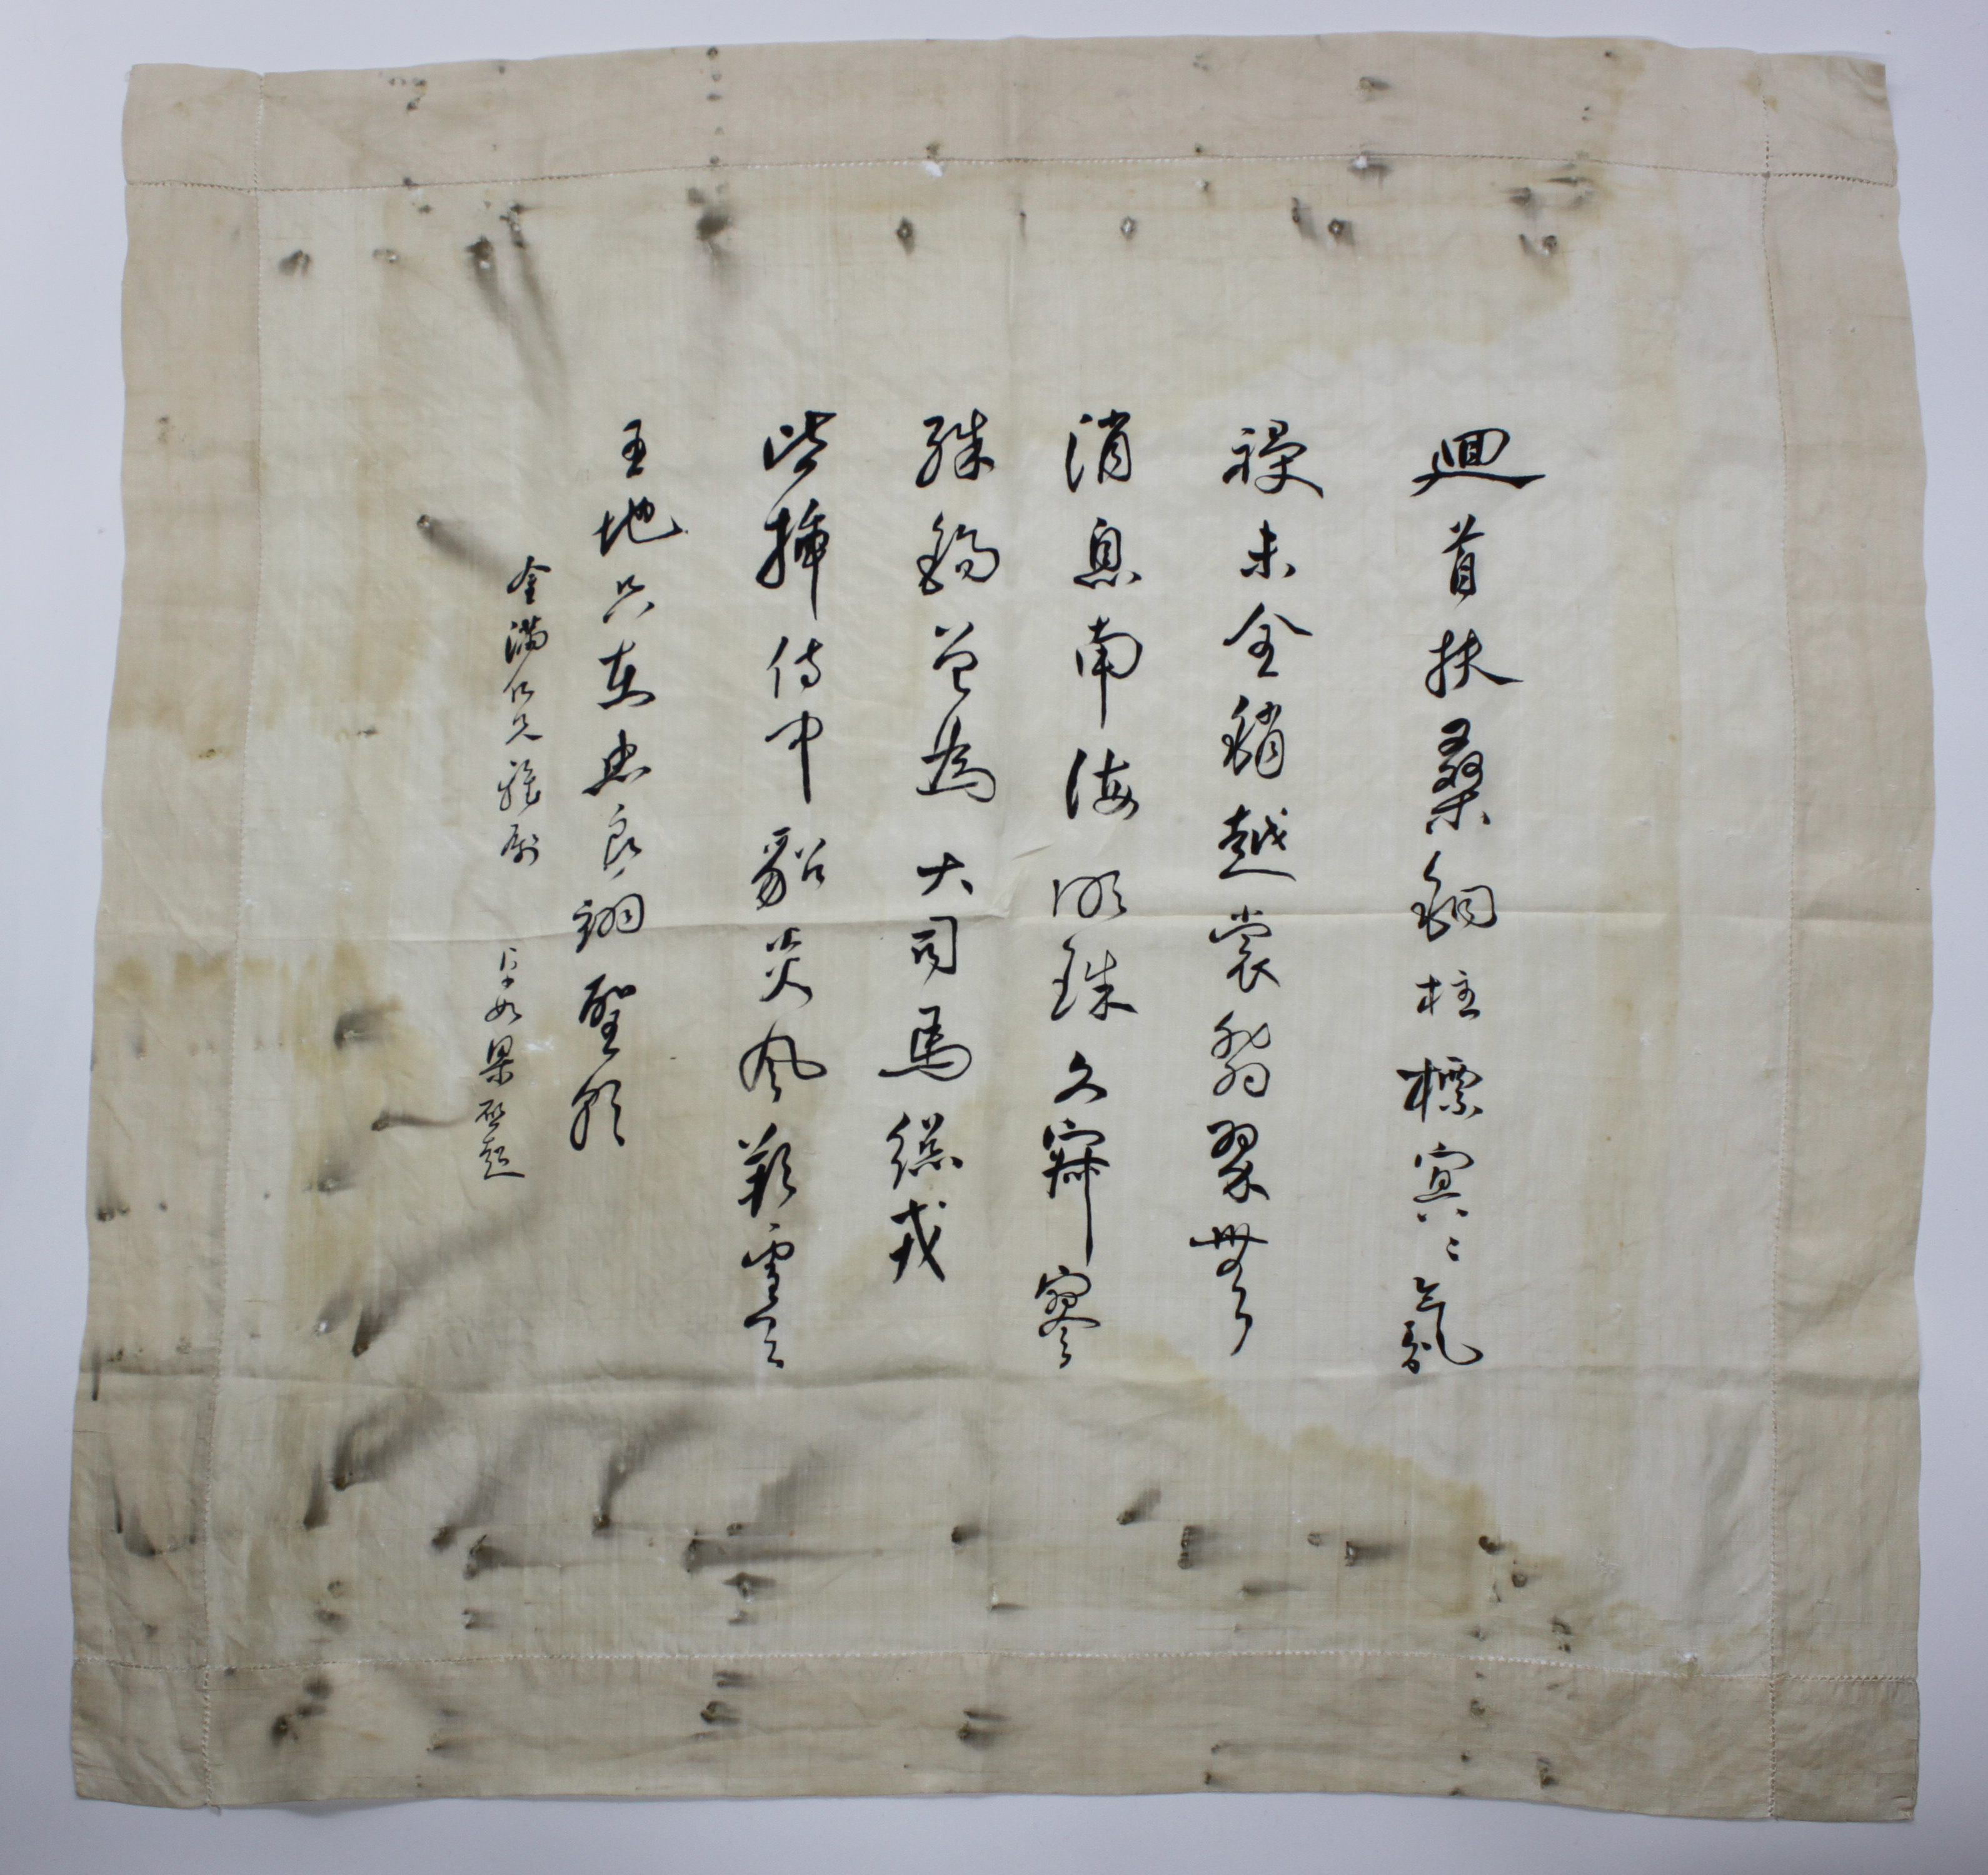 迴首扶桑銅柱標冥〻氛
祲未全銷越裳翡翠無
消息南海明珠久寂寥
殊錫曾為大司馬總戎
皆插侍中貂炎風朔雪天
王地只在忠良翊聖朝
金滿仁兄雅屬 卓如梁啟超